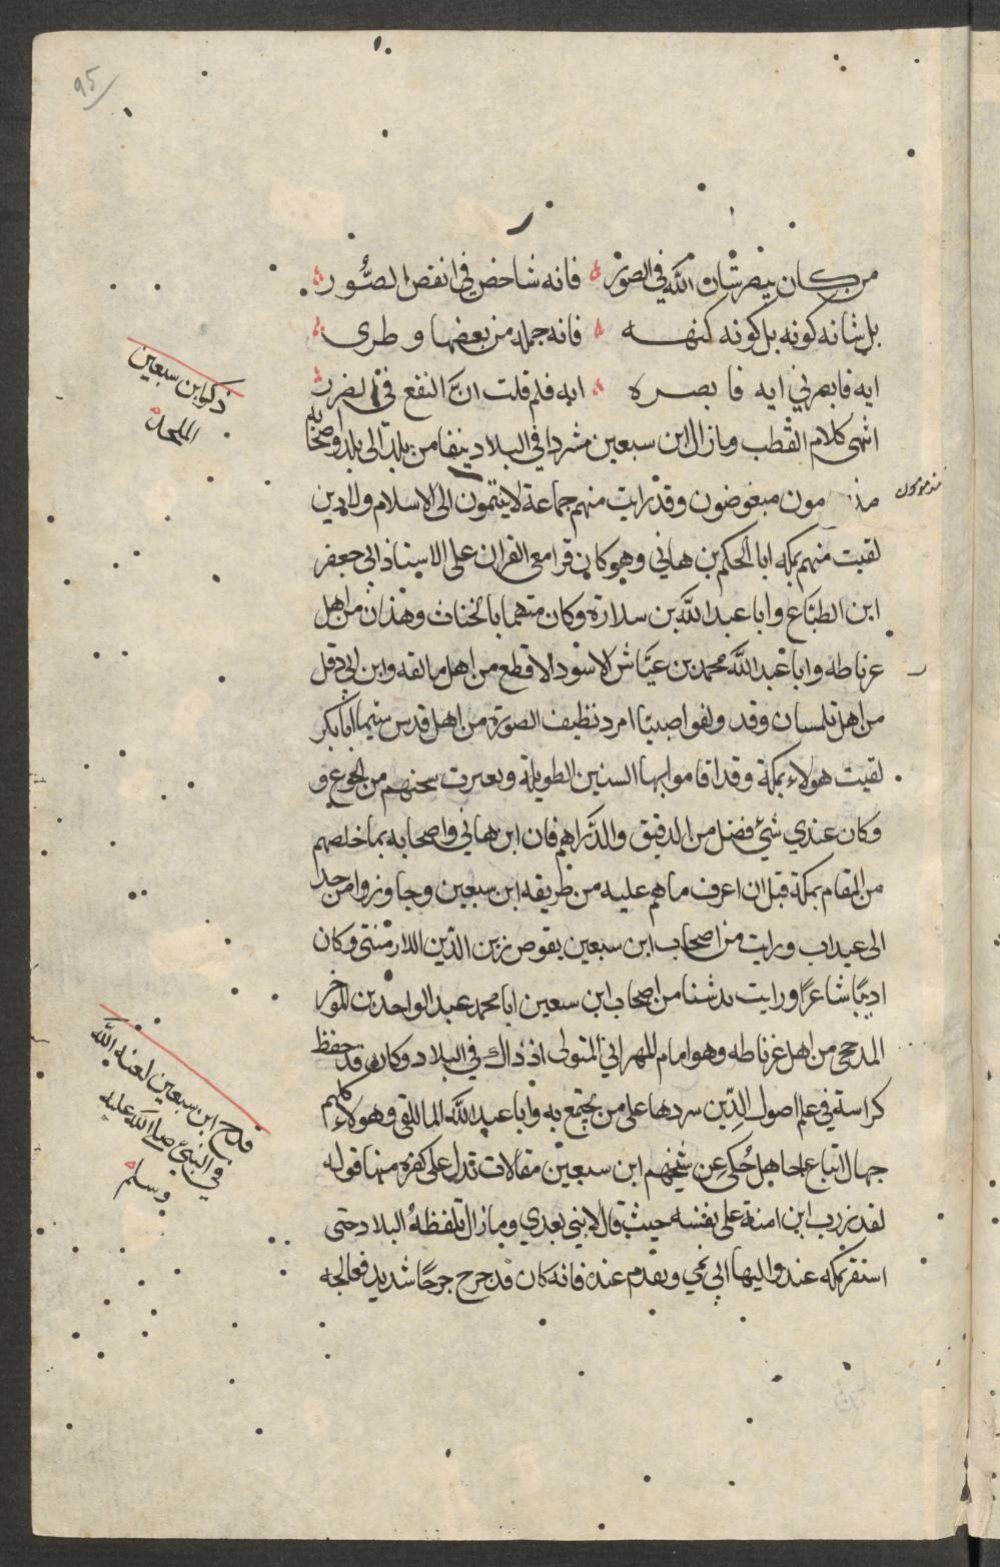 ٩٥
من كان يبصر شان الله في الصور فانه شاخص في انقص الصور
بل شانه كونه بل كونه كنهه فانه جملة من بعضها وطرى
ايه فابصرني ايه فا بصره ايه فلم قلت ان النفع في الضرر
انتهى كلام القطب وما زال ابن سبعين مشردا في البلاد ينفا من بلد الى بلد واصحابه
مذمومون مبغوضون وقد رايت منهم جماعة لا ينتمون الى الاسلام ولا لدين
مذمومون
لقيت منهم بمكة ابا الحكم بن هاني وهو كان قرا معي القران على الاستاذ ابي جعفر
ابن الطباع وابا عبد الله بن سلارة وكان متهما بالخناث وهذان من اهل
غرناطه وابا عبد الله محمد بن عياش الاسود الاقطع من اهل مالقه وابن ابي دقل
من اهل تلمسان وقد ولفوا صبيا امرد نظيف الصورة من اهل قدس سيما ابا بكر
لقيت هولاء بمكة وقد اقاموا بها السنين الطويلة وتغيرت سحنهم من الجوع و
وكان عندي شئ فضل من الدقيق والدراهم فان ابن هاني واصحابه بما خلصهم
من المقام بمكة قبل ان اعرف ما هم عليه من طريقه ابن سبعين وجاوزوا من جدا
الى عيداب ورايت من اصحاب ابن سبعين بقوص زين الدين اللارمنتى وكان
اديبا شاعرا ورايت بدشنا من اصحاب ابن سبعين ابا محمد عبد الواحد بن المؤخر
المدحجى من اهل غرناطه وهو امام للمهراني المتولى اذ ذاك في البلاد وكان قد حفظ
كراسة في علم اصول الدين سردها على من يجتمع به وابا عبد الله المالقي وهولاء كلهم
جهال اتباع جاهل حكي عن شيخهم ابن سبعين مقالات تدل على كفره منها قوله
لقد زرب ابن امنة على نفسه حيث قال لا نبي بعدي وما زال تلفظه البلاد حتى
استقر بمكه عند واليها ابي نمي وتقدم عنده فانه كان قد جرح جرحا شديد فعالجه
ذكر ابن سبعين
الملحد
قدح ابن سبعين لعنه الله
في النبي صلى الله عليه
وسلم